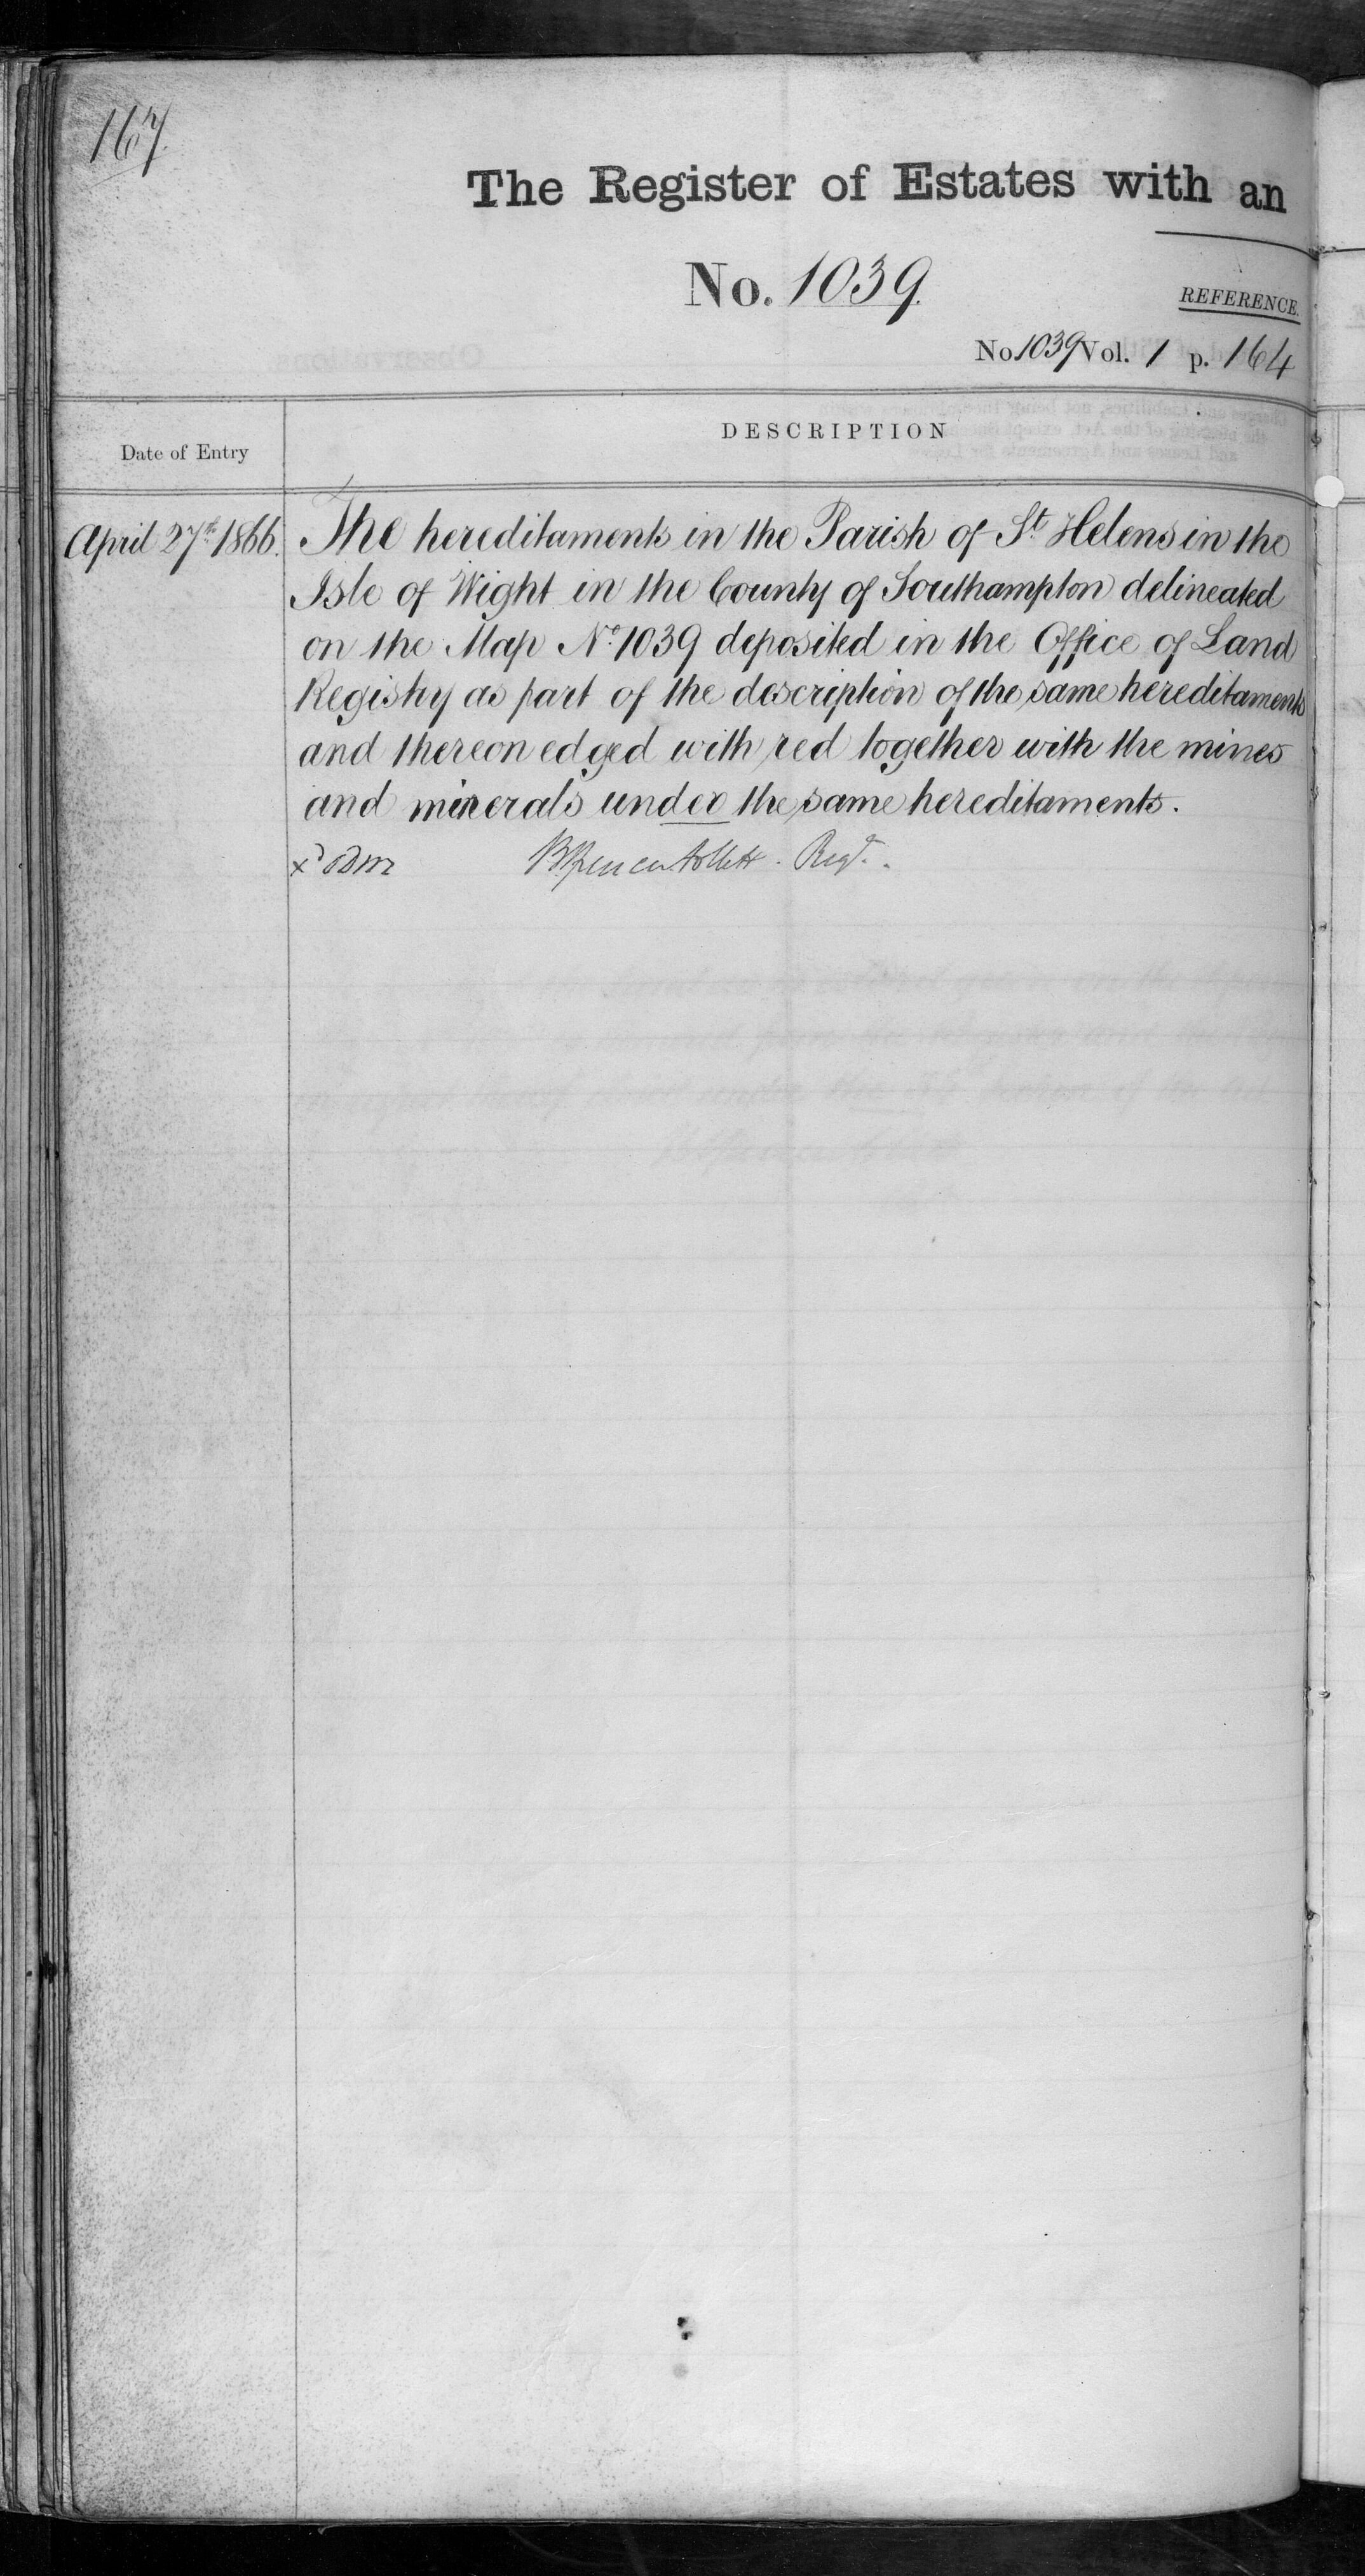 167.
The Register of Estates with an
No. 1039.
REFERENCE.
No 1039 Vol. 1 p. 164
Date of Entry
DESCRIPTION
April 27th 1866.
The hereditaments in the Parish of St Helens in the
Isle of Wight in the County of Southampton delineated
on the Map No. 1039 deposited in the Office of Land
Registry as part of the description of the same hereditaments
and thereon edged with red together with the mines
and minerals under the same hereditaments.
Brent Spencer Follett. Regr.